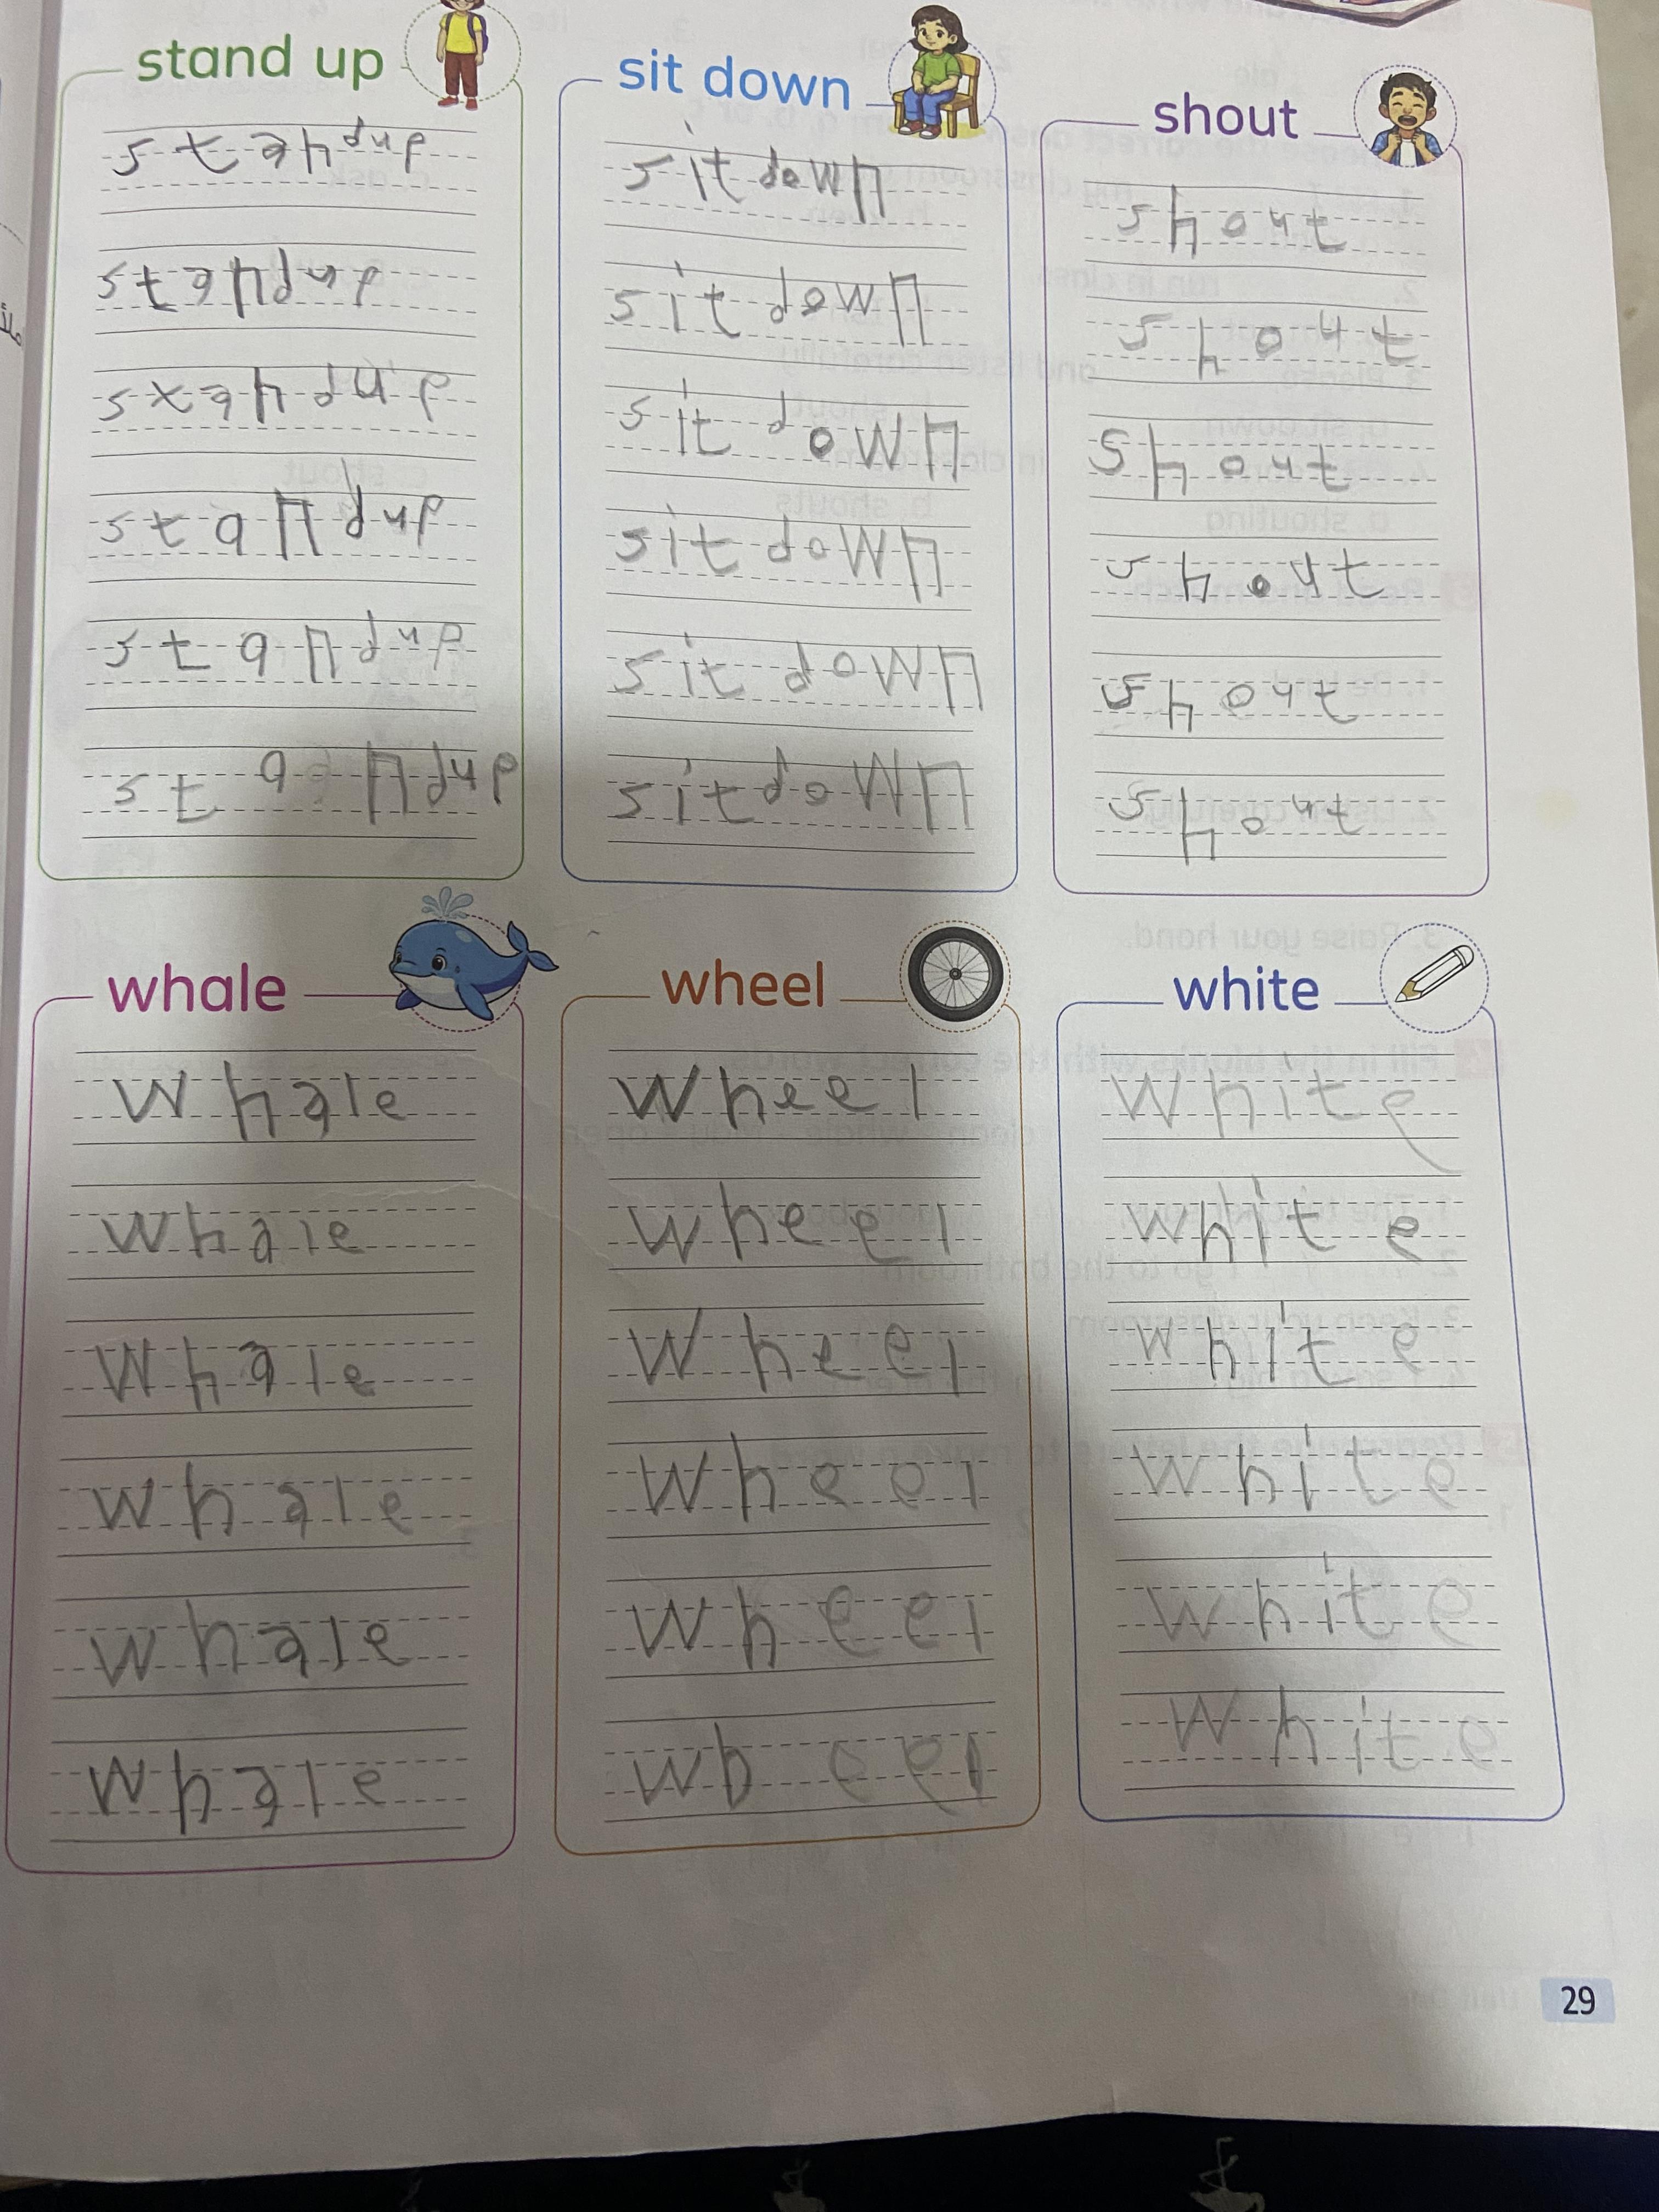 stand up
stand up
stand up
stand up
stand up
stand up
stand up
sit down
sit down
sit down
sit down
sit down
sit down
sit down
shout
shout
shout
shout
shout
shout
shout
whale
whale
whale
whale
whale
whale
whale
wheel
wheel
wheel
wheel
wheel
wheel
wheel
white
white
white
white
white
white
white
29